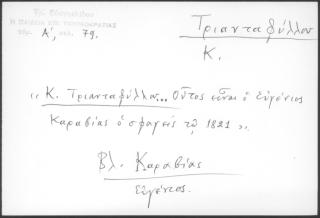 Τρ. Ευαγγελίδου
Η ΠΑΙΔΕΙΑ ΕΠΙ ΤΟΥΡΚΟΚΡΑΤΙΑΣ
τόμ. Α', σελ. 79.
Τριανταφύλλου
Κ.
« Κ. Τριανταφύλλου... Οὗτος εἶναι ὁ Εὐγένιος
Καραβίας ὁ σφαγεὶς τῷ 1821 ».
Βλ. Καραβίας
Εὐγένιος.